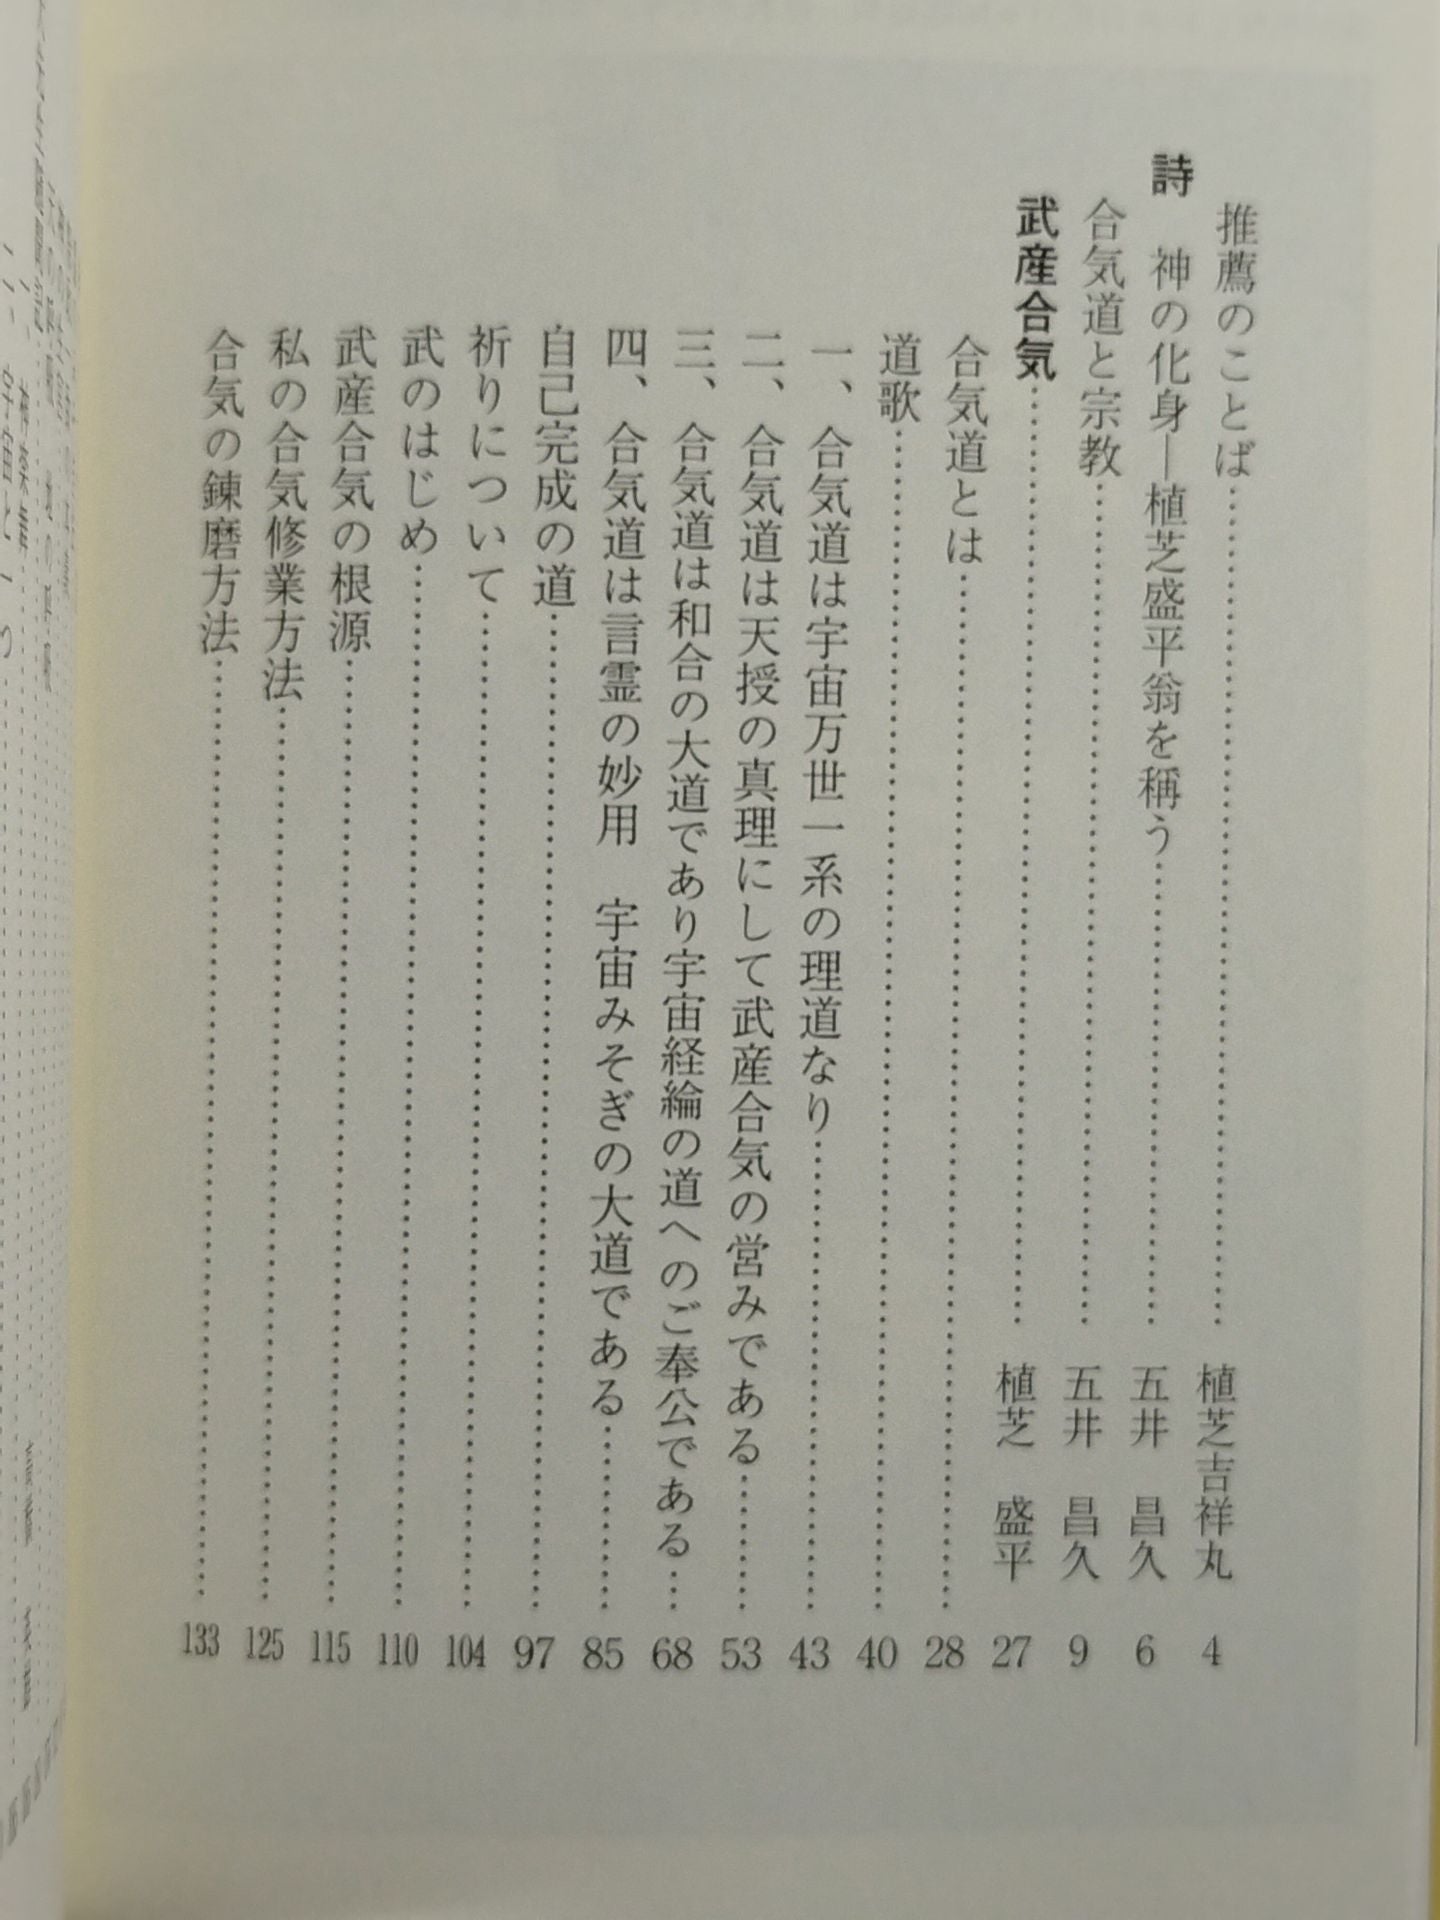 推薦のことば……………………植芝吉祥丸 4
詩 神の化身―植芝盛平翁を稱う……………………五井 昌久 6
合気道と宗教……………………五井 昌久 9
武産合気……………………植芝 盛平 27
合気道とは……………………28
道歌……………………40
一、合気道は宇宙万世一系の理道なり……………………43
二、合気道は天授の真理にして武産合気の営みである………53
三、合気道は和合の大道であり宇宙経綸の道へのご奉公である…68
四、合気道は言霊の妙用 宇宙みそぎの大道である…………85
自己完成の道……………………97
祈りについて……………………104
武のはじめ……………………110
武産合気の根源……………………115
私の合気修業方法……………………125
合気の錬磨方法……………………133